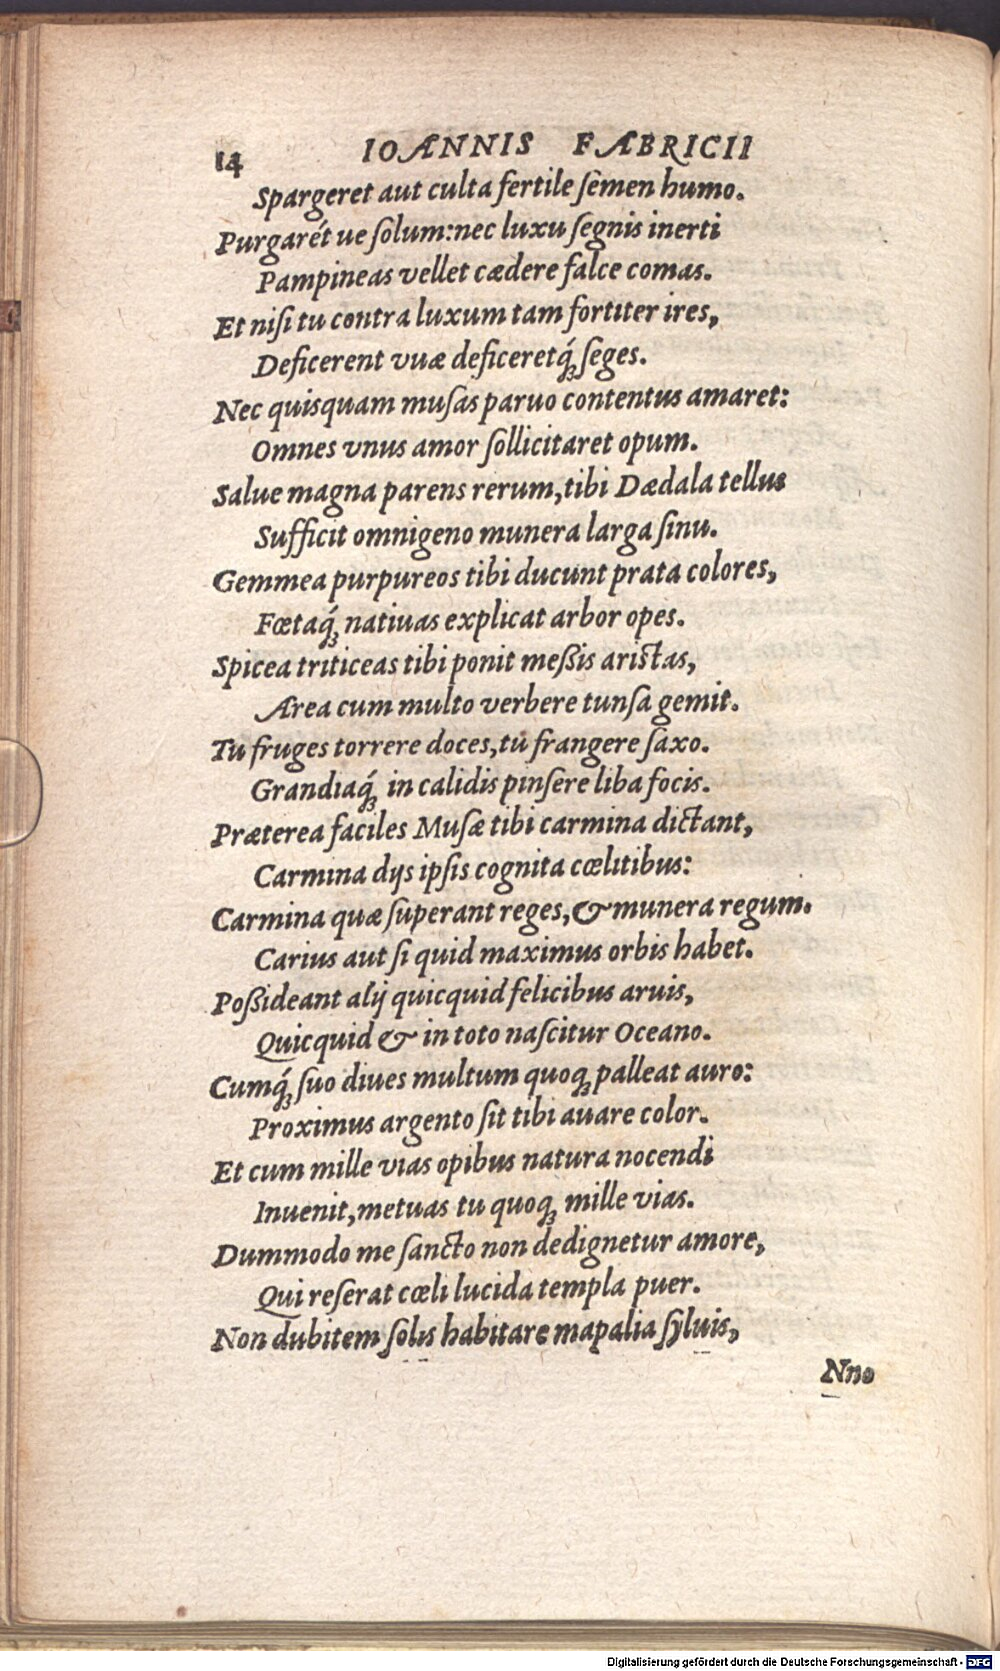 14 IOANNIS FABRICII
Spargeret aut culta fertile semen humo.
Purgarét ue solum:nec luxu segnis inerti
Pampineas vellet cædere falce comas.
Et nisi tu contra luxum tam fortiter ires,
Deficerent vuæ deficeretq́; seges.
Nec quisquam musas paruo contentus amaret:
Omnes vnus amor sollicitaret opum.
Salue magna parens rerum,tibi Dædala tellus
Sufficit omnigeno munera larga sinu.
Gemmea purpureos tibi ducunt prata colores,
Fœtaq́; natiuas explicat arbor opes.
Spicea triticeas tibi ponit meßis aristas,
Area cum multo verbere tunsa gemit.
Tu fruges torrere doces,tu frangere saxo.
Grandiaq́; in calidis pinsere liba focis.
Præterea faciles Musæ tibi carmina dictant,
Carmina dijs ipsis cognita cœlitibus:
Carmina quæ superant reges,& munera regum.
Carius aut si quid maximus orbis habet.
Poßideant alij quicquid felicibus aruis,
Quicquid & in toto nascitur Oceano.
Cumq́; suo diues multum quoq; palleat auro:
Proximus argento sit tibi auare color.
Et cum mille vias opibus natura nocendi
Inuenit,metuas tu quoq; mille vias.
Dummodo me sancto non dedignetur amore,
Qui reserat cœli lucida templa puer.
Non dubitem solis habitare mapalia syluis,
Nno
Digitalisierung gefördert durch die Deutsche Forschungsgemeinschaft - DFG